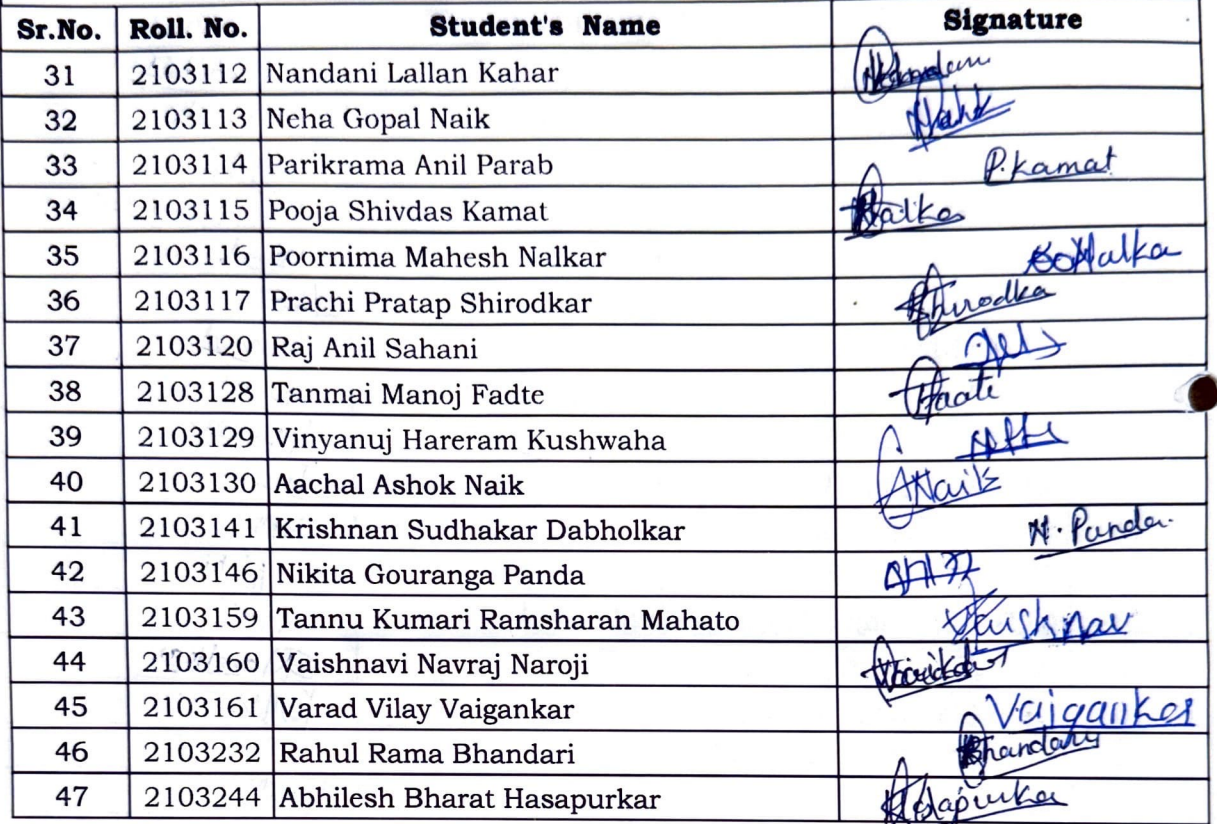 Sr.No. Roll. No. Student's Name Signature
31 2103112 Nandani Lallan Kahar
32 2103113 Neha Gopal Naik Naik
33 2103114 Parikrama Anil Parab P.Kamat
34 2103115 Pooja Shivdas Kamat
35 2103116 Poornima Mahesh Nalkar
36 2103117 Prachi Pratap Shirodkar Shirodka
37 2103120 Raj Anil Sahani
38 2103128 Tanmai Manoj Fadte
39 2103129 Vinyanuj Hareram Kushwaha
40 2103130 Aachal Ashok Naik ANaik
41 2103141 Krishnan Sudhakar Dabholkar N. Panda.
42 2103146 Nikita Gouranga Panda
43 2103159 Tannu Kumari Ramsharan Mahato
44 2103160 Vaishnavi Navraj Naroji
45 2103161 Varad Vilay Vaigankar Vaigankar
46 2103232 Rahul Rama Bhandari Bhandary
47 2103244 Abhilesh Bharat Hasapurkar